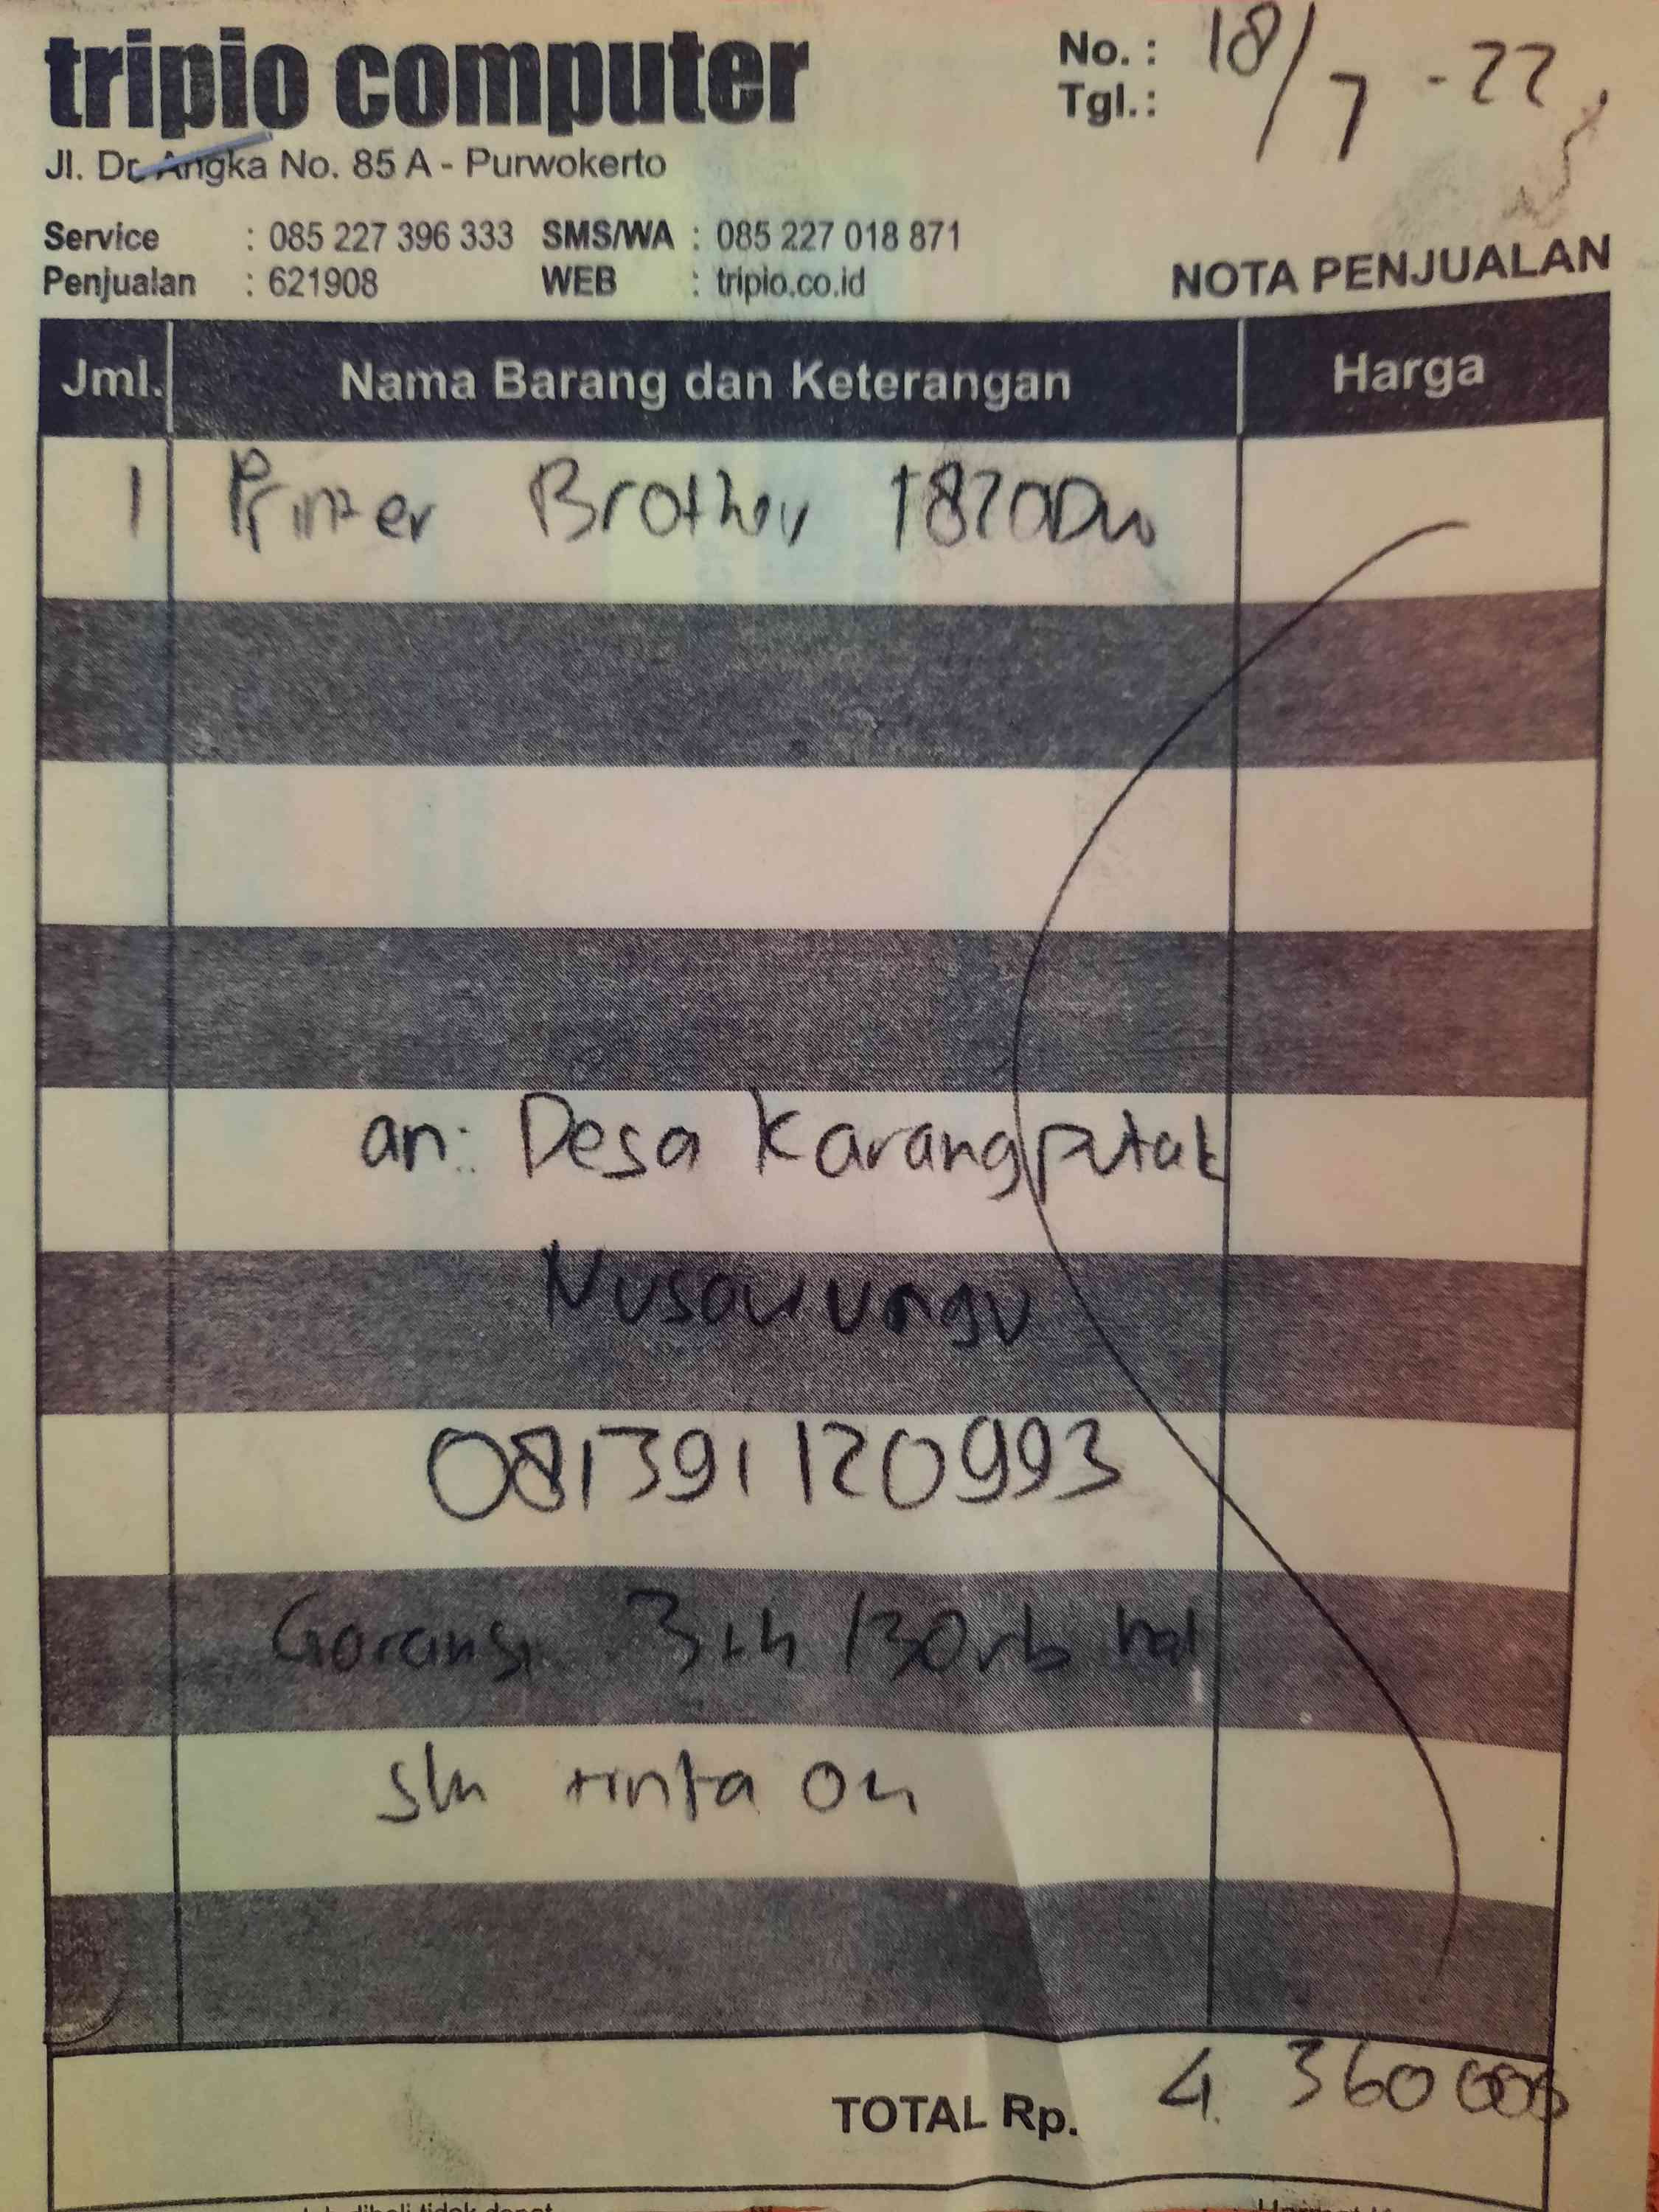 tripio computer
Jl. Dr. Angka No. 85 A - Purwokerto
No. :
Tgl. : 18/7 - 22
Service : 085 227 396 333 SMS/WA : 085 227 018 871
Penjualan : 621908 WEB : tripio.co.id
NOTA PENJUALAN
Jml. Nama Barang dan Keterangan Harga
1 Printer Brother T820DW
an: Desa Karangputat
Nusawungu
081391120993
Garansi 3th / 30rb hal
slm tinta ori
TOTAL Rp. 4.360 000